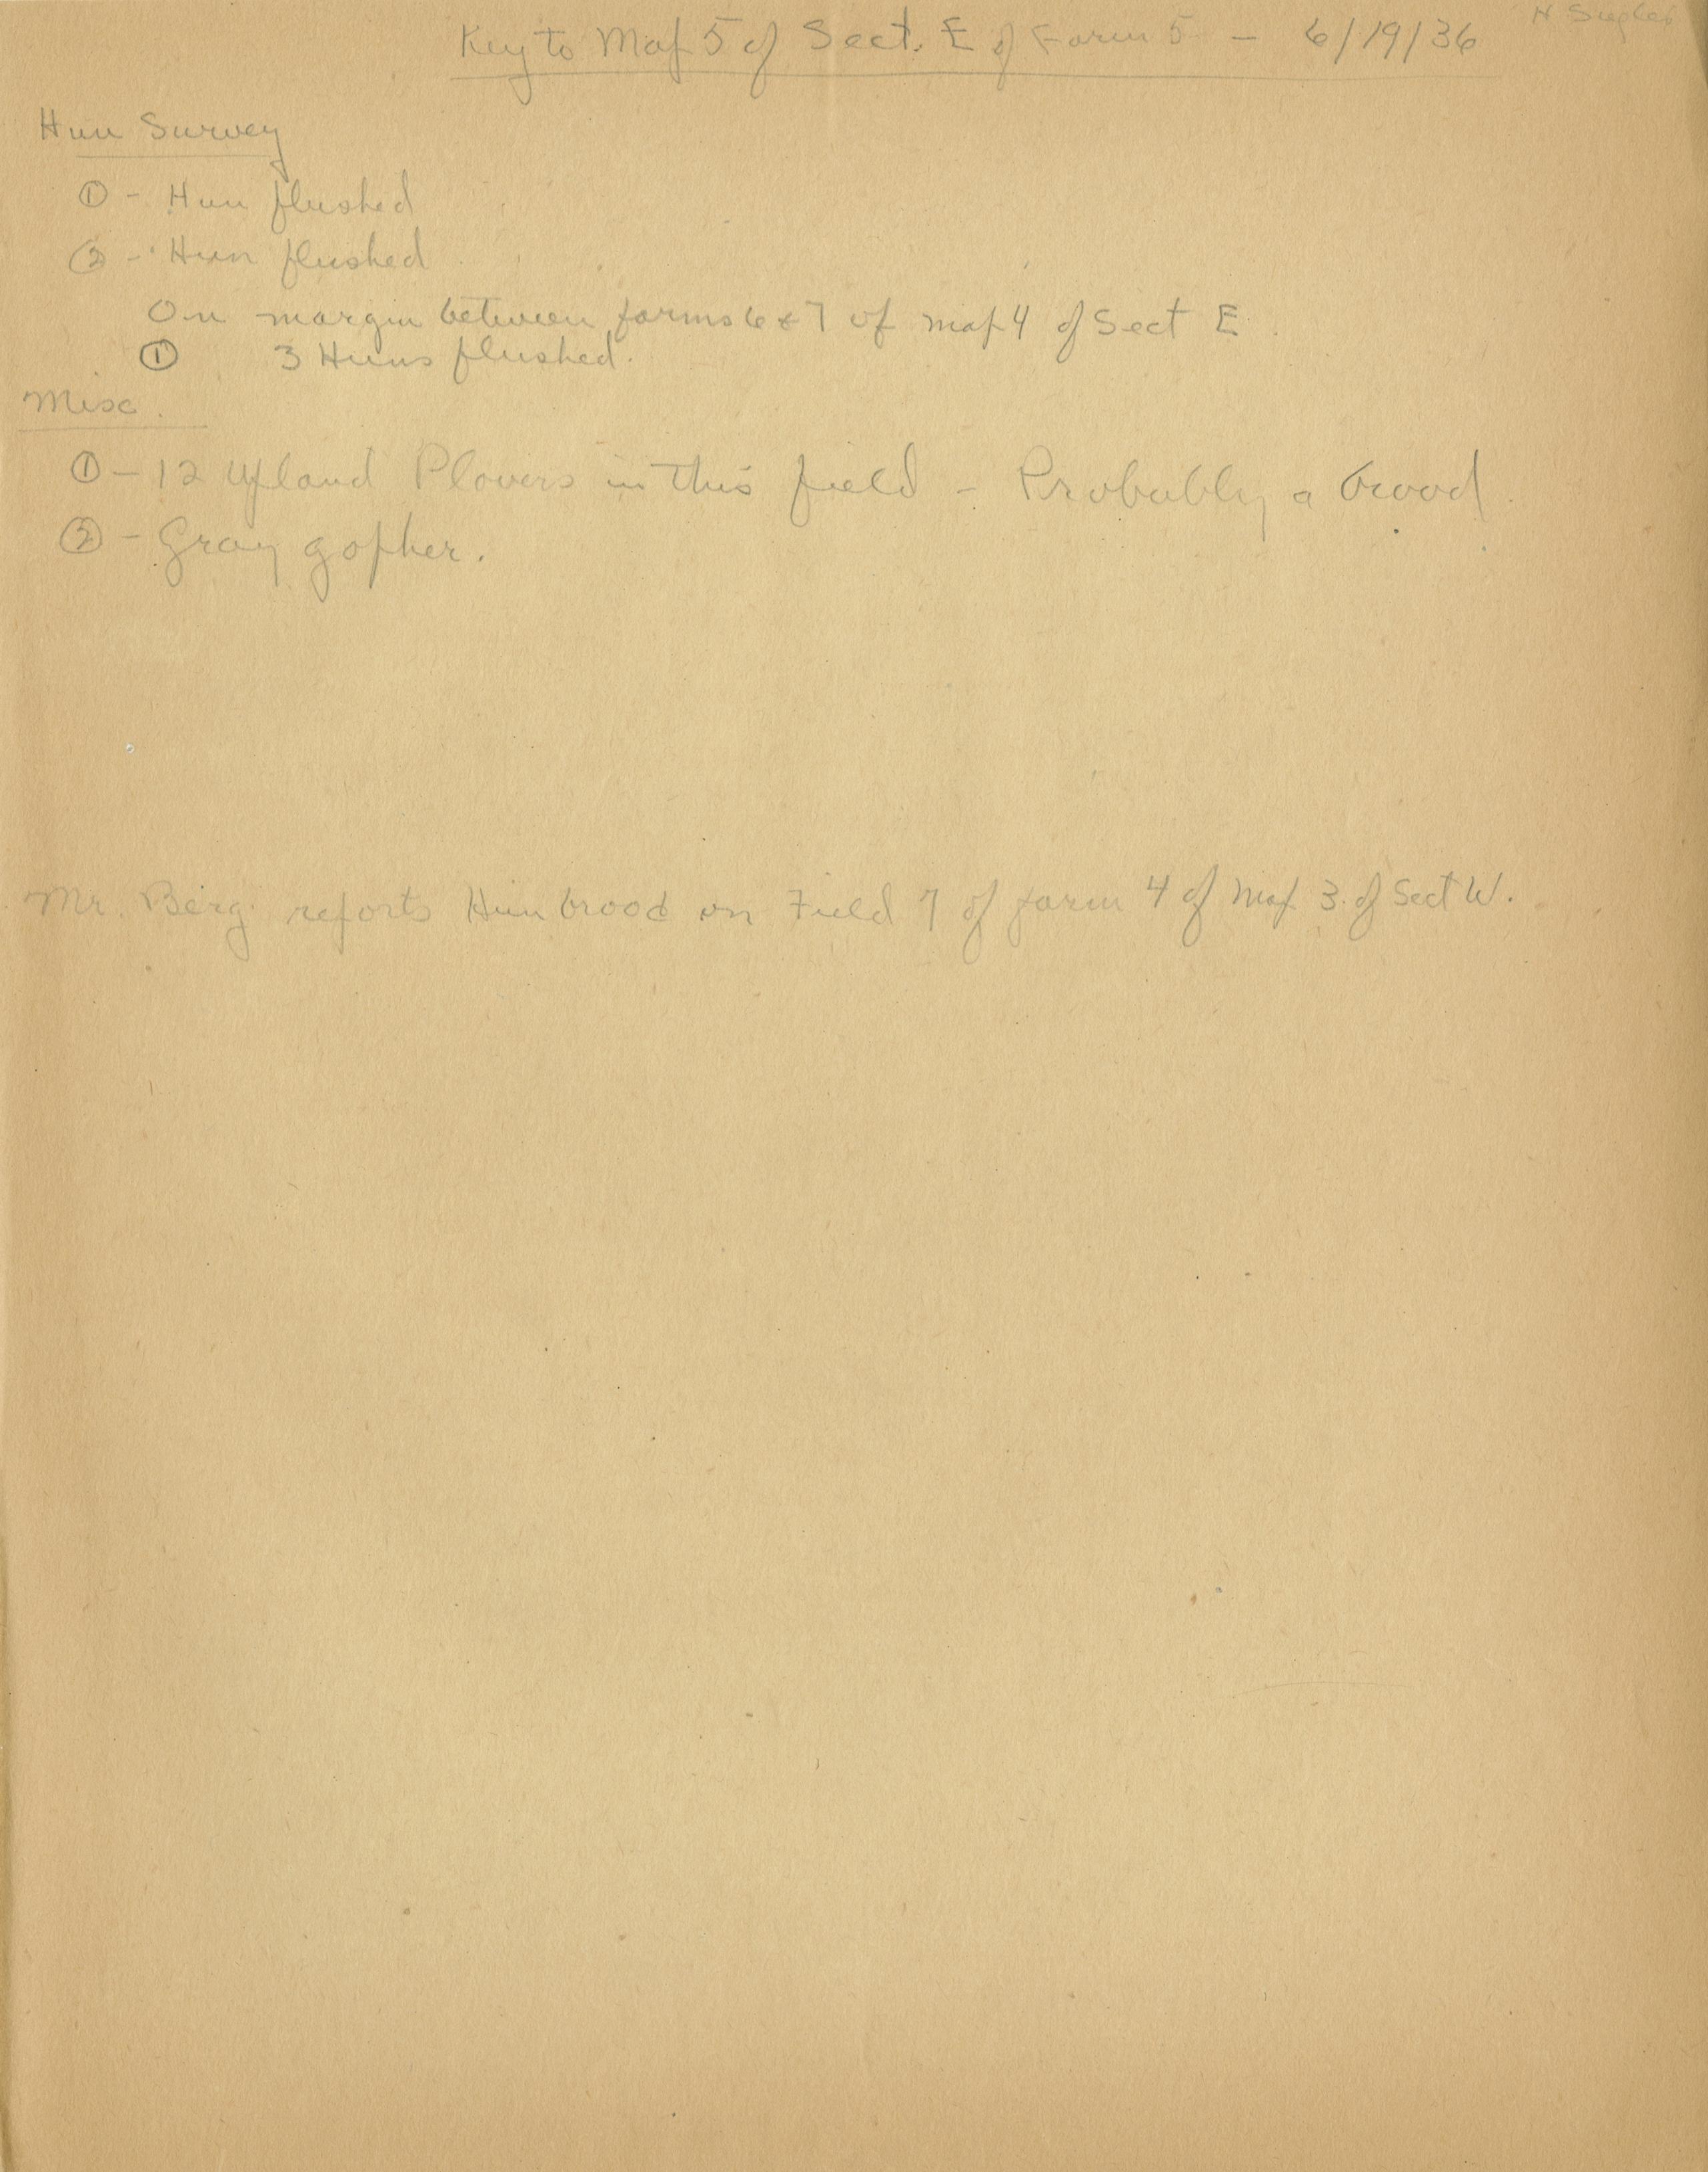 Key to Map 5 of Sect. E of Farm 5 - 6/19/36
Hun Survey
① - Hun flushed
② - Hun flushed
On margin between farms 6 & 7 of map 4 of Sect E
① 3 Huns flushed.
Misc.
① - 12 Upland Plovers in this field - Probably a brood.
② - Gray gopher.
Mr. Berg reports Hun brood on Field 7 of farm 4 of Map 3 of Sect W.